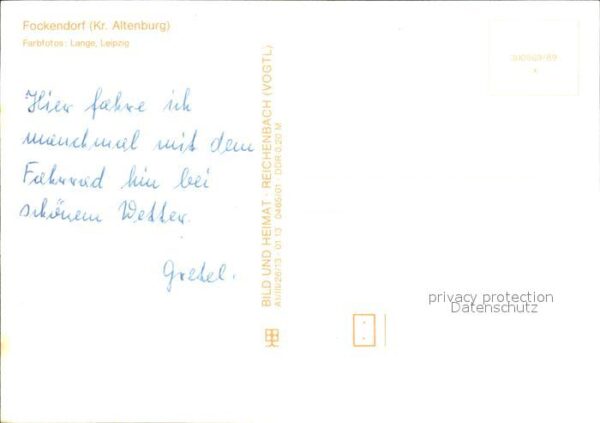 Fockendorf (Kr. Altenburg)
Farbfotos: Lange, Leipzig
Hier fahre ich
manchmal mit dem
Fahrrad hin bei
schönem Wetter.
Gretel.
BILD UND HEIMAT · REICHENBACH (VOGTL)
A1/III/26/13 01 13 0465/01 DDR 0,20 M
310569/89
privacy protection
Datenschutz